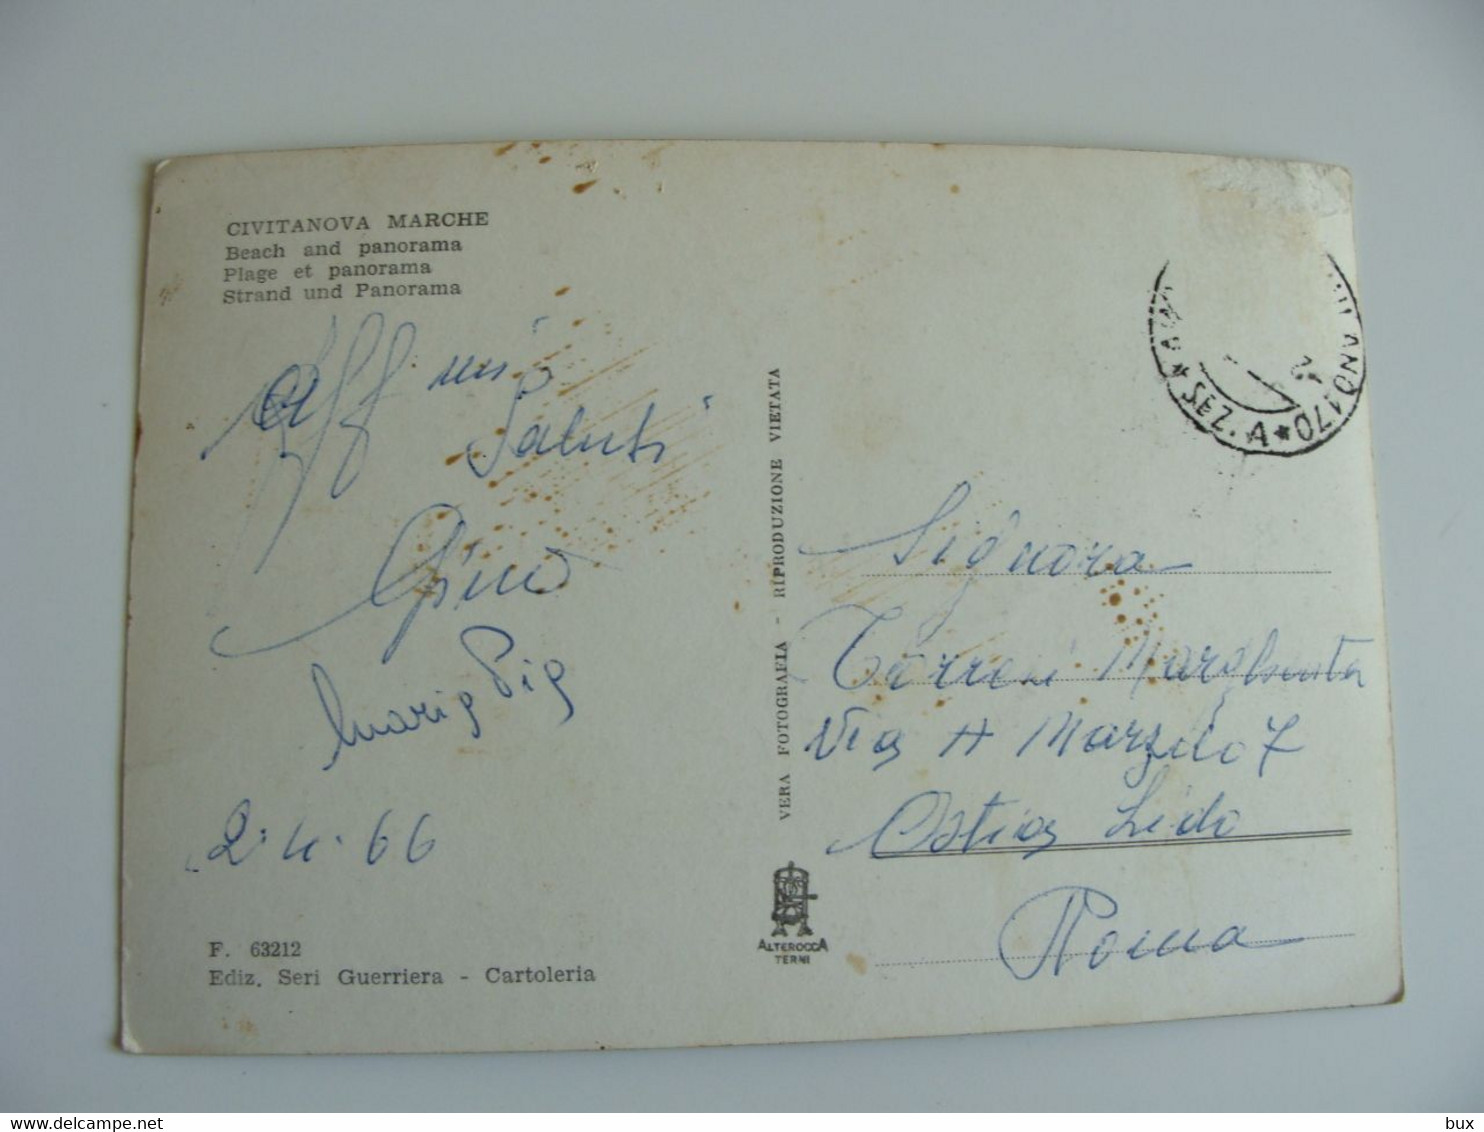 CIVITANOVA MARCHE
Beach and panorama
Plage et panorama
Strand und Panorama
Aff mi
Saluti
Gino
Maria Pia
2.4.66
F. 63212
Ediz. Seri Guerriera - Cartoleria
VERA FOTOGRAFIA - RIPRODUZIONE VIETATA
ALTEROCCA
TERNI
* SEZ. A *
Signora
Torresi Margherita
Via A Marzilo 7
Ostia Lido
Roma
bux